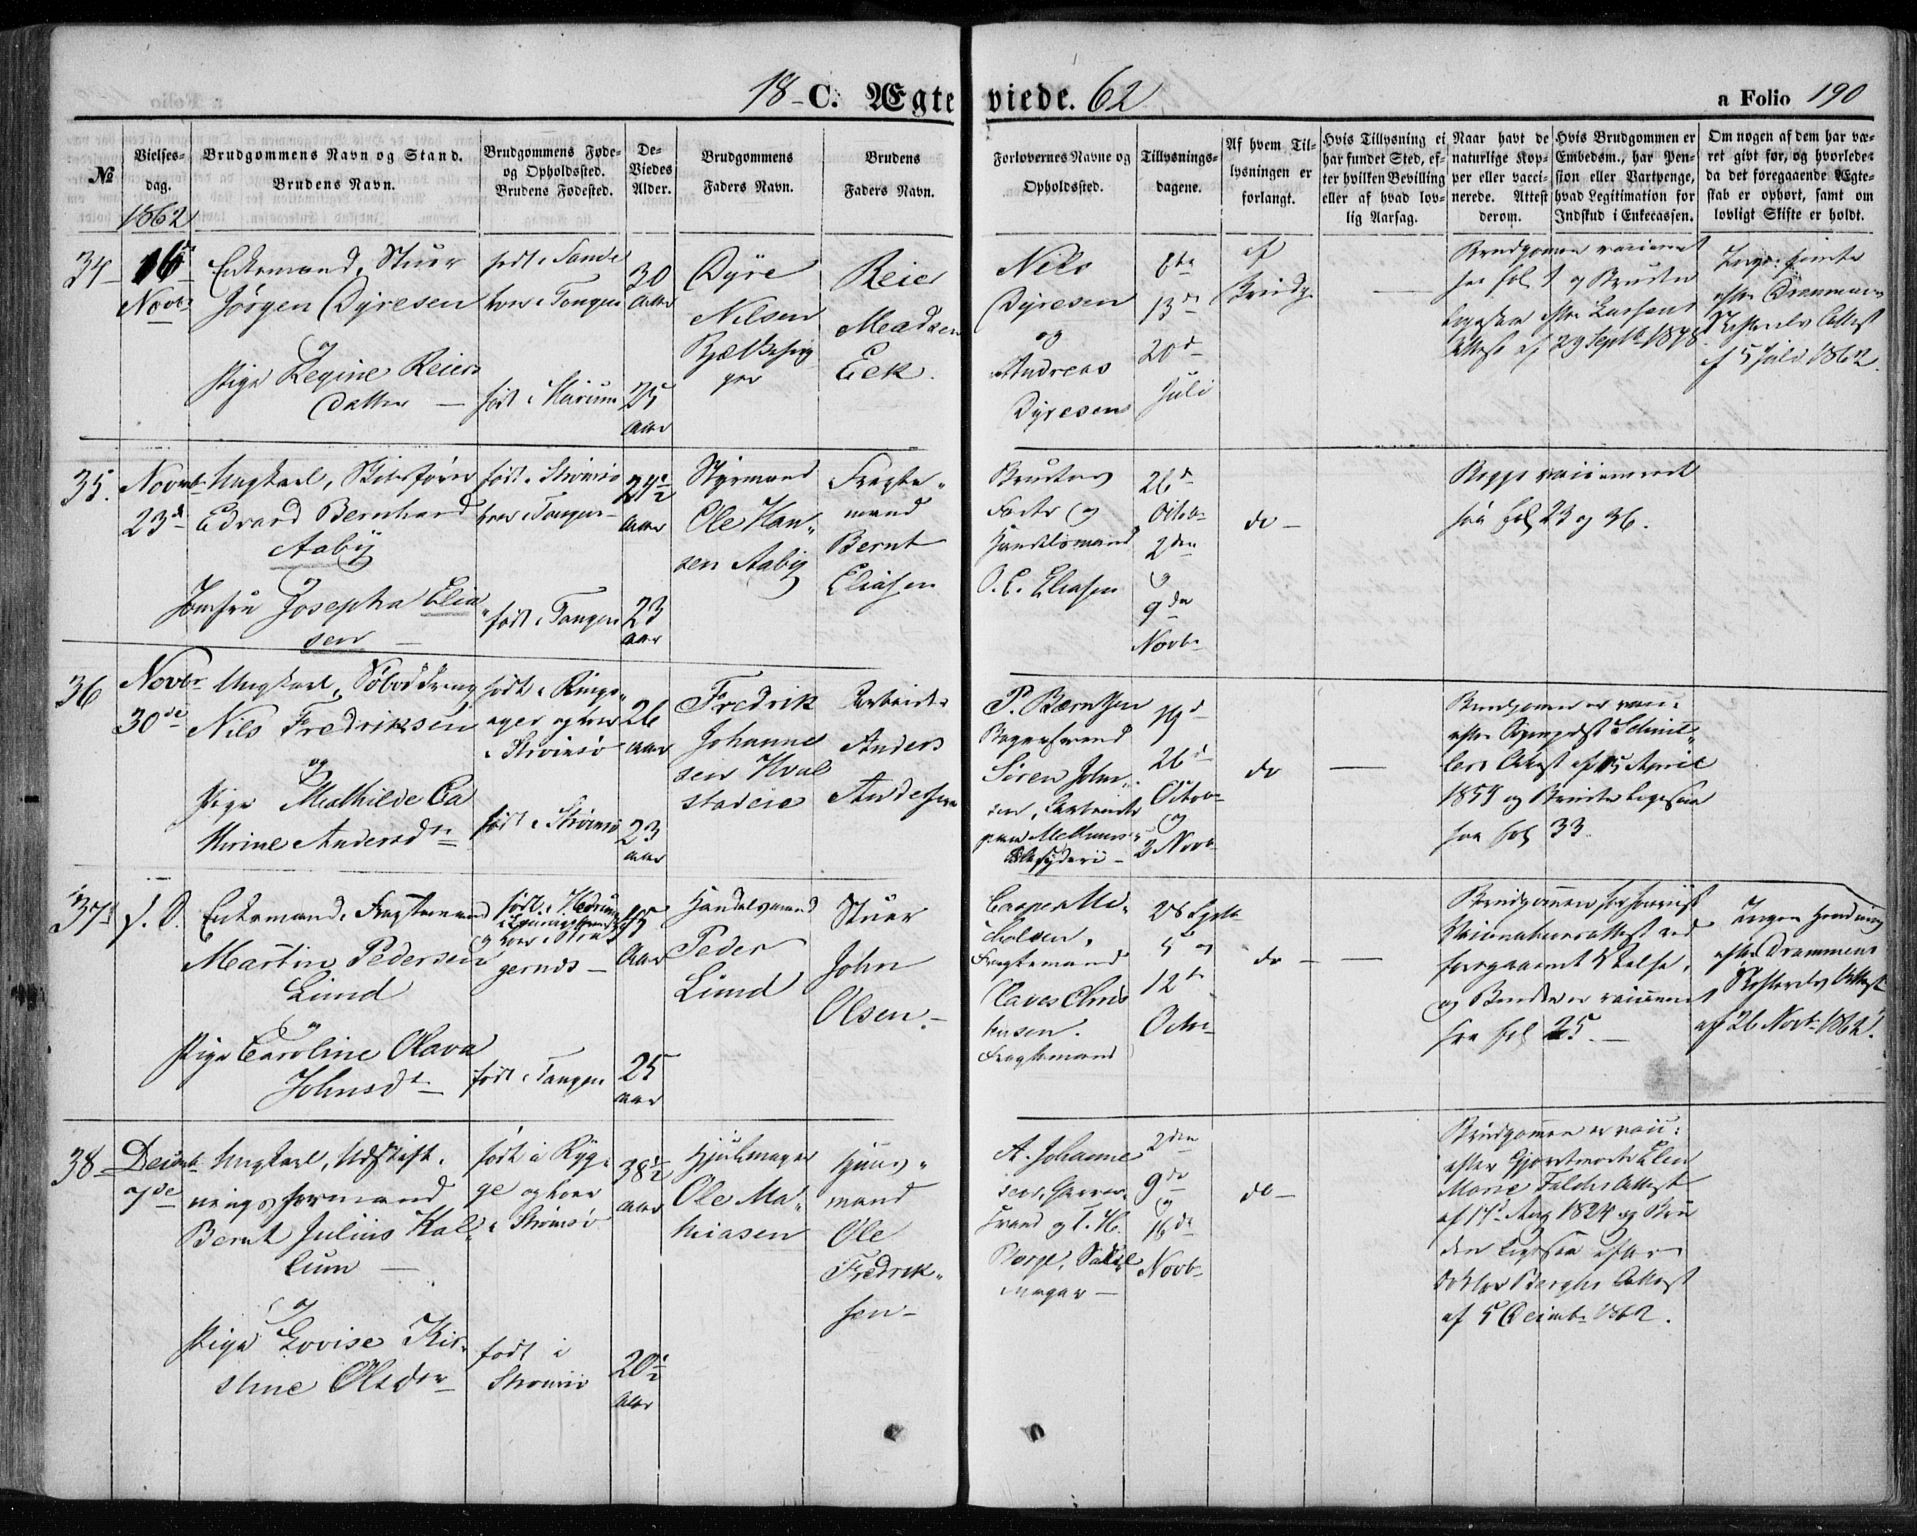 18 C. Ægteviede. 62
a Folio 190
№
Vielses-
dag.
Brudgommens Navn og Stand.
Brudens Navn.
Brudgommens Føde-
og Opholdssted.
Brudens Fødested.
De
Viedes
Alder.
Brudgommens
Faders Navn.
Brudens
Faders Navn.
Forlovernes Navne og
Opholdssted.
Tillysnings-
dagene.
Af hvem Til-
lysningen er
forlangt.
Hvis Tillysning ei
har fundet Sted, ef-
ter hvilken Bevilling
eller af hvad lov-
lig Aarsag.
Naar havt de
naturlige Kop-
per eller vacci-
nerede. Attest
derom.
Hvis Brudgommen er
Embedsm., har Pen-
sion eller Vartpenge,
hvad Legitimation for
Indskud i Enkecassen.
Om nogen af dem har væ-
ret gift før, og hvorledes
da det foregaaende Ægte-
skab er ophørt, samt om
lovligt Skifte er holdt.
1862
34
16de
Novbr
Enkemand, Stuer
Jørgen Dyresen
og
Pige Regine Reiers
Datter
født i Sande
boer i Tangen
født i
30
Aar
25
Aar
Dyre
Nilsen
Reier
Madsen
Eek.
Nils
Dyresen
og
Andreas
Dyresen
6te
13de
20de
Juli
af
Brudg.
Brudgomen vaccineret
see fol 1 og Bruden
ligesaa efter
Attest af 29 Septbr 1848
efter Drammens
Skifterets Attest
af 5 Juli 1862.
35.
Novmbr
23de
Ungkarl,
Edvard Bernhard
Aaby
og
Jomfru Josepha Elia
sen
født i Strømsø
boer i Tangen
født i Tangen
24½
Aar
23
Aar
Styrmand
Ole Han-
sen Aaby
Fragte-
mand
Bernt
Eliasen
Brudens
Fader og
Handelsmand
O. E. Eliasen
26de
Octob
2den
og
9de
Novbr
do
Begge vaccinerede
see fol 23 og 36.
36
Novbr
30de
Ungkarl,
Nils Fredriksen
og
Pige Mathilde Ca
thrine Andersdtr
født i Ringe-
ager og boer
i Strømsø
født i Strømsø
26
Aar
23
Aar
Fredrik
Johanne
sen
Arbeider
Anders
Andersen
P. Berntsen
Søren John-
sen, Arbeider
19de
26de
Octobr
og
2 Novbr
do
Brudgomen er vacc:
efter
Attest af 15 April
1854 og Bruden ligesaa
see fol 33.
37
s. D.
Enkemand, Fragtemand
Martin Pedersen
Lund
og
Pige Caroline Olava
Johnsdtr
født i
født i Tangen
45
Aar
25
Aar
Handelsmand
Peder
Lund
Stuer
John
Olsen.
Fragtemand
Fragtemand
28 Septbr
5te og
12te
Octbr
do
Brudgomen har foreviist
Vaccinationsattest ved
foregaaende Vielse,
og Bruden er vaccineret
see fol 25.
efter Drammens
Skifterets Attest
af 26 Novbr 1862.
38
Decmbr
7de
Ungkarl,
ningsformand
Bernt Julius Kal-
lum
og
Pige Lovise Kir-
stine Olsdtr
født i Ryg-
ge og boer
i Strømsø
født i
Strømsø
38½
Aar
20½
Aar
Hjulmager
Ole Ma-
thiasen
Huus-
mand
Ole
Fredrik-
sen
A. Johanne
sen, Garver-
svend og T. H.
Borge, Sadel
mager
2den
9de
og
16de
Novbr
do
Brudgomen er vacc:
efter Gjordmoder Elen
Marie Falchs Attest
af 17de Aug 1824 og Bru
den ligesaa efter
Doktor Berghs Attest
af 5 Decmbr 1862.